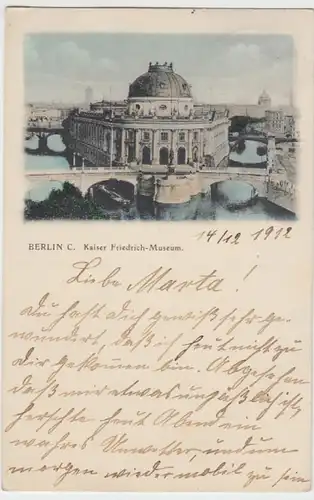 BERLIN C. Kaiser Friedrich-Museum.
14/12 1912
Liebe Marta!
Du hast dich gewiß sehr ge-
wundert, daß ich heut nicht zu
dir gekommen bin. Abgesehen
daß mir etwas unpäßlich,
herschte heut Abend ein
wahres Unwetter, und um
morgen wieder mobil zu sein